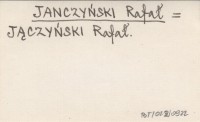 JANCZYŃSKI Rafał =
JĄCZYŃSKI Rafał.